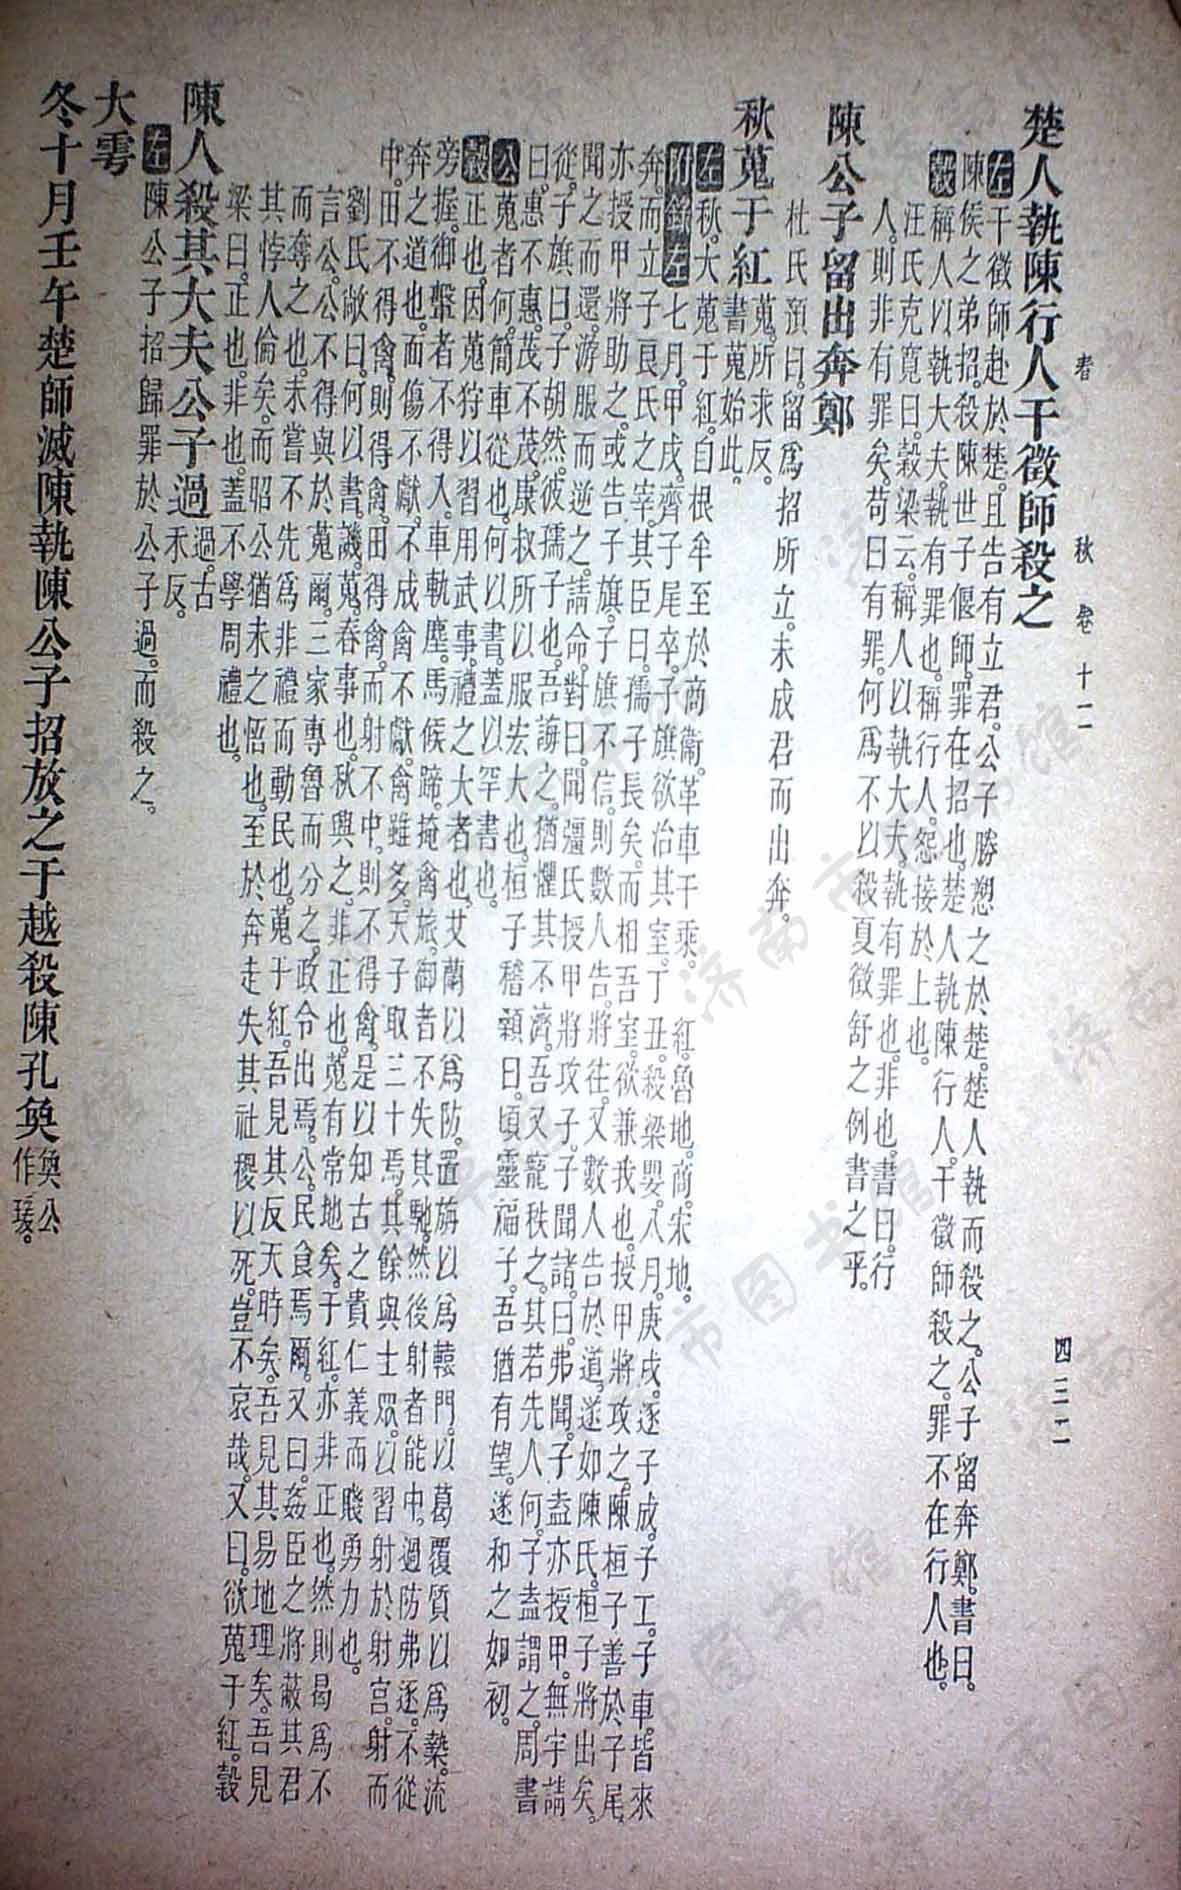 春秋 卷十二 四三二
楚人執陳行人干徵師殺之
左干徵師赴於楚。且告有立君。公子勝愬之於楚。楚人執而殺之。公子留奔鄭。書曰。
陳侯之弟招。殺陳世子偃師。罪在招也。楚人執陳行人。干徵師殺之。罪不在行人也。
穀稱人以執大夫。執有罪也。稱行人。怨接於上也。
汪氏克寬曰。穀梁云。稱人以執大夫。執有罪也。非也。書曰。行
人。則非有罪矣。苟曰有罪。何爲不以殺夏徵舒之例書之乎。
陳公子留出奔鄭
杜氏預曰。留爲招所立。未成君而出奔。
秋蒐于紅 蒐。所求反。書蒐始此。
左秋。大蒐于紅。自根牟至於商衞。革車千乘。紅。魯地。商。宋地。
附錄左七月。甲戌。齊子尾卒。子旗欲治其室。丁丑。殺梁嬰。八月。庚戌。逐子成。子工。子車。皆來
奔。而立子良氏之宰。其臣曰。孺子長矣。而相吾室。欲兼我也。授甲將攻之。陳桓子善於子尾。
亦授甲將助之。或告子旗。子旗不信。則數人告。將往。又數人告於道。遂如陳氏。桓子將出矣。
聞之而還。游服而逆之。請命。對曰。聞彊氏授甲將攻子。子聞諸。曰。弗聞。子盍亦授甲。無宇請
從。子旗曰。子胡然。彼孺子也。吾誨之。猶懼其不濟。吾又寵秩之。其若先人何。子盍謂之。周書
曰。惠不惠。茂不茂。康叔所以服宏大也。桓子稽顙曰。頃靈福子。吾猶有望。遂和之如初。
公蒐者何。簡車從也。何以書。蓋以罕書也。
穀正也。因蒐狩以習用武事。禮之大者也。艾蘭以爲防。置旃以爲轅門。以葛覆質以爲槷。流
旁握。御轚者不得入。車軌塵。馬候蹄。掩禽旅。御者不失其馳。然後射者能中。過防弗逐。不從
奔之道也。面傷不獻。不成禽不獻。禽雖多。天子取三十焉。其餘與士眾。以習射於射宮。射而
中。田不得禽。則得禽。田得禽。而射不中。則不得禽。是以知古之貴仁義而賤勇力也。
劉氏敞曰。何以書。譏。蒐。春事也。秋興之。非正也。蒐有常地矣。于紅。亦非正也。然則曷爲不
言公。公不得與於蒐爾。三家專魯而分之。政令出焉。公民食焉爾。又曰。姦臣之將蔽其君
而奪之也。未嘗不先爲非禮而動民也。蒐于紅。吾見其反天時矣。吾見其易地理矣。吾見
其悖人倫矣。而昭公猶未之悟也。至於奔走失其社稷以死。豈不哀哉。又曰。欲蒐于紅。穀
梁曰。正也。非也。蓋不學周禮也。
陳人殺其大夫公子過 過。古禾反。
左陳公子招歸罪於公子過。而殺之。
大雩
冬十月壬午楚師滅陳執陳公子招放之于越殺陳孔奐 奐公作瑗。
济南市图书馆